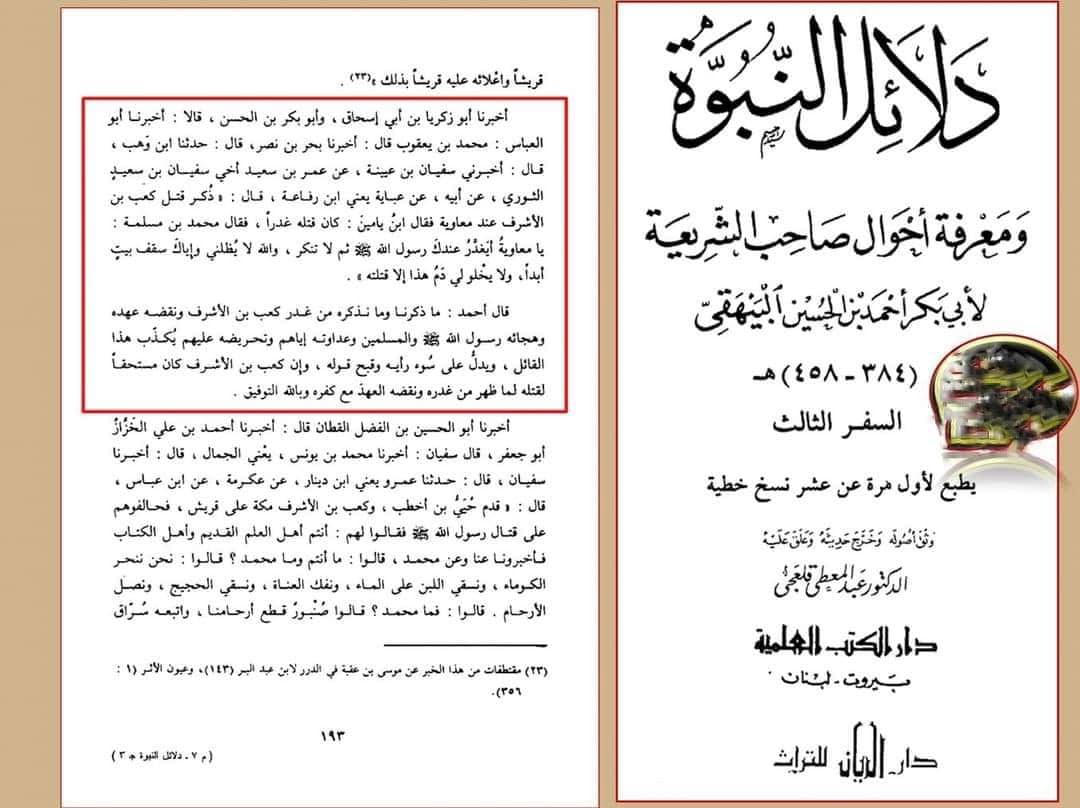 دَلَائِلُ النُّبُوَّة
وَمَعْرِفَة أَحْوَال صَاحِبِ الشَّرِيعَة
لأبي بَكر أحمَد بن الحُسَين البَيْهَقِيّ
(٣٨٤ - ٤٥٨) هـ
السفر الثالث
يطبع لأول مرة عن عشر نسخ خطية
وَثّقَ أُصُولَهُ وَخَرّجَ حَدِيثَهُ وَعَلّقَ عَلَيْه
الدكتور عبد المعطي قلعجي
دار الكتب العلمية
بيروت - لبنان
دار الريان للتراث
قريشاً وإعْلائه عليه قريشاً بذلك »(٢٣) .
أخبرنا أبو زكريا بن أبي إسحاق ، وأبو بكر بن الحسن ، قالا : أخبرنا أبو
العباس : محمد بن يعقوب قال : أخبرنا بحر بن نصر، قال : حدثنا ابن وَهب ،
قال : أخبرني سفيان بن عيينة ، عن عمر بن سعيد أخي سفيـان بن سعيدٍ
الثوري ، عن أبيه ، عن عباية يعني ابن رفـاعة ، قـال : « ذُكـر قتـل كعب بن
الأشرف عند معاوية فقال ابنُ يامينَ : كان قتله غدراً ، فقال محمد بن مسلمة :
يا معاويةُ أيَغْدُرُ عندكَ رسول الله ﷺ ثم لا تنكر ، والله لا يُظلني وإياكَ سقف بيتٍ
أبداً، ولا يخْلو لي دَمُ هذا إلا قتلته » .
قال أحمد : ما ذكرنـا وما نـذكره من غدر كعب بن الأشرف ونقضـه عهده
وهجائه رسول الله ﷺ والمسلمين وعداوتـه إياهم وتحريضه عليهم يُكـذّب هذا
القائل ، ويدلُّ على سُوء رأيـه وقبح قـوله ، وإن كعب بن الأشرف كان مستحقـاً
لقتله لما ظهر من غدره ونقضه العهدَ مع كفره وبالله التوفيق .
أخبرنا أبو الحسين بن الفضل القطان قال : أخبـرنا أحمـد بن علي الخَزَّازُ
أبو جعفر ، قال سفيان : أخبرنا محمد بن يونس ، يعْني الجمال ، قال : أخبـرنا
سفيـان ، قال : حـدثنا عمـرو يعني ابن دينار ، عن عكـرمة ، عن ابن عباس ،
قال : « قدم حُيَيُّ بن أخطب ، وكعب بن الأشرف مكة على قريش ، فحـالفوهم
على قتـال رسول الله ﷺ فقـالوا لهم : أنتم أهـل العلم القديم وأهـل الكتاب
فـأخبرونـا عنا وعن محمد ، قالوا : ما أنتم وما محمـد ؟ قـالـوا : نحن ننحـر
الكوماء ، ونسقي اللبن على الماء ، ونفك العناة ، ونسقي الحجيج ، ونصـل
الأرحـام . قالوا : فما محمد ؟ قـالـوا صُنْبُورٌ قـطع أرحـامنـا ، واتبعـه سُرّاق
(٢٣) مقتطفات من هذا الخبر عن موسى بن عقبة في الدرر لابن عبد البر (١٤٣)، وعيون الأثر (١ :
٣٥٦).
١٩٣
( م ٧ - دلائل النبوة جـ ٣ )